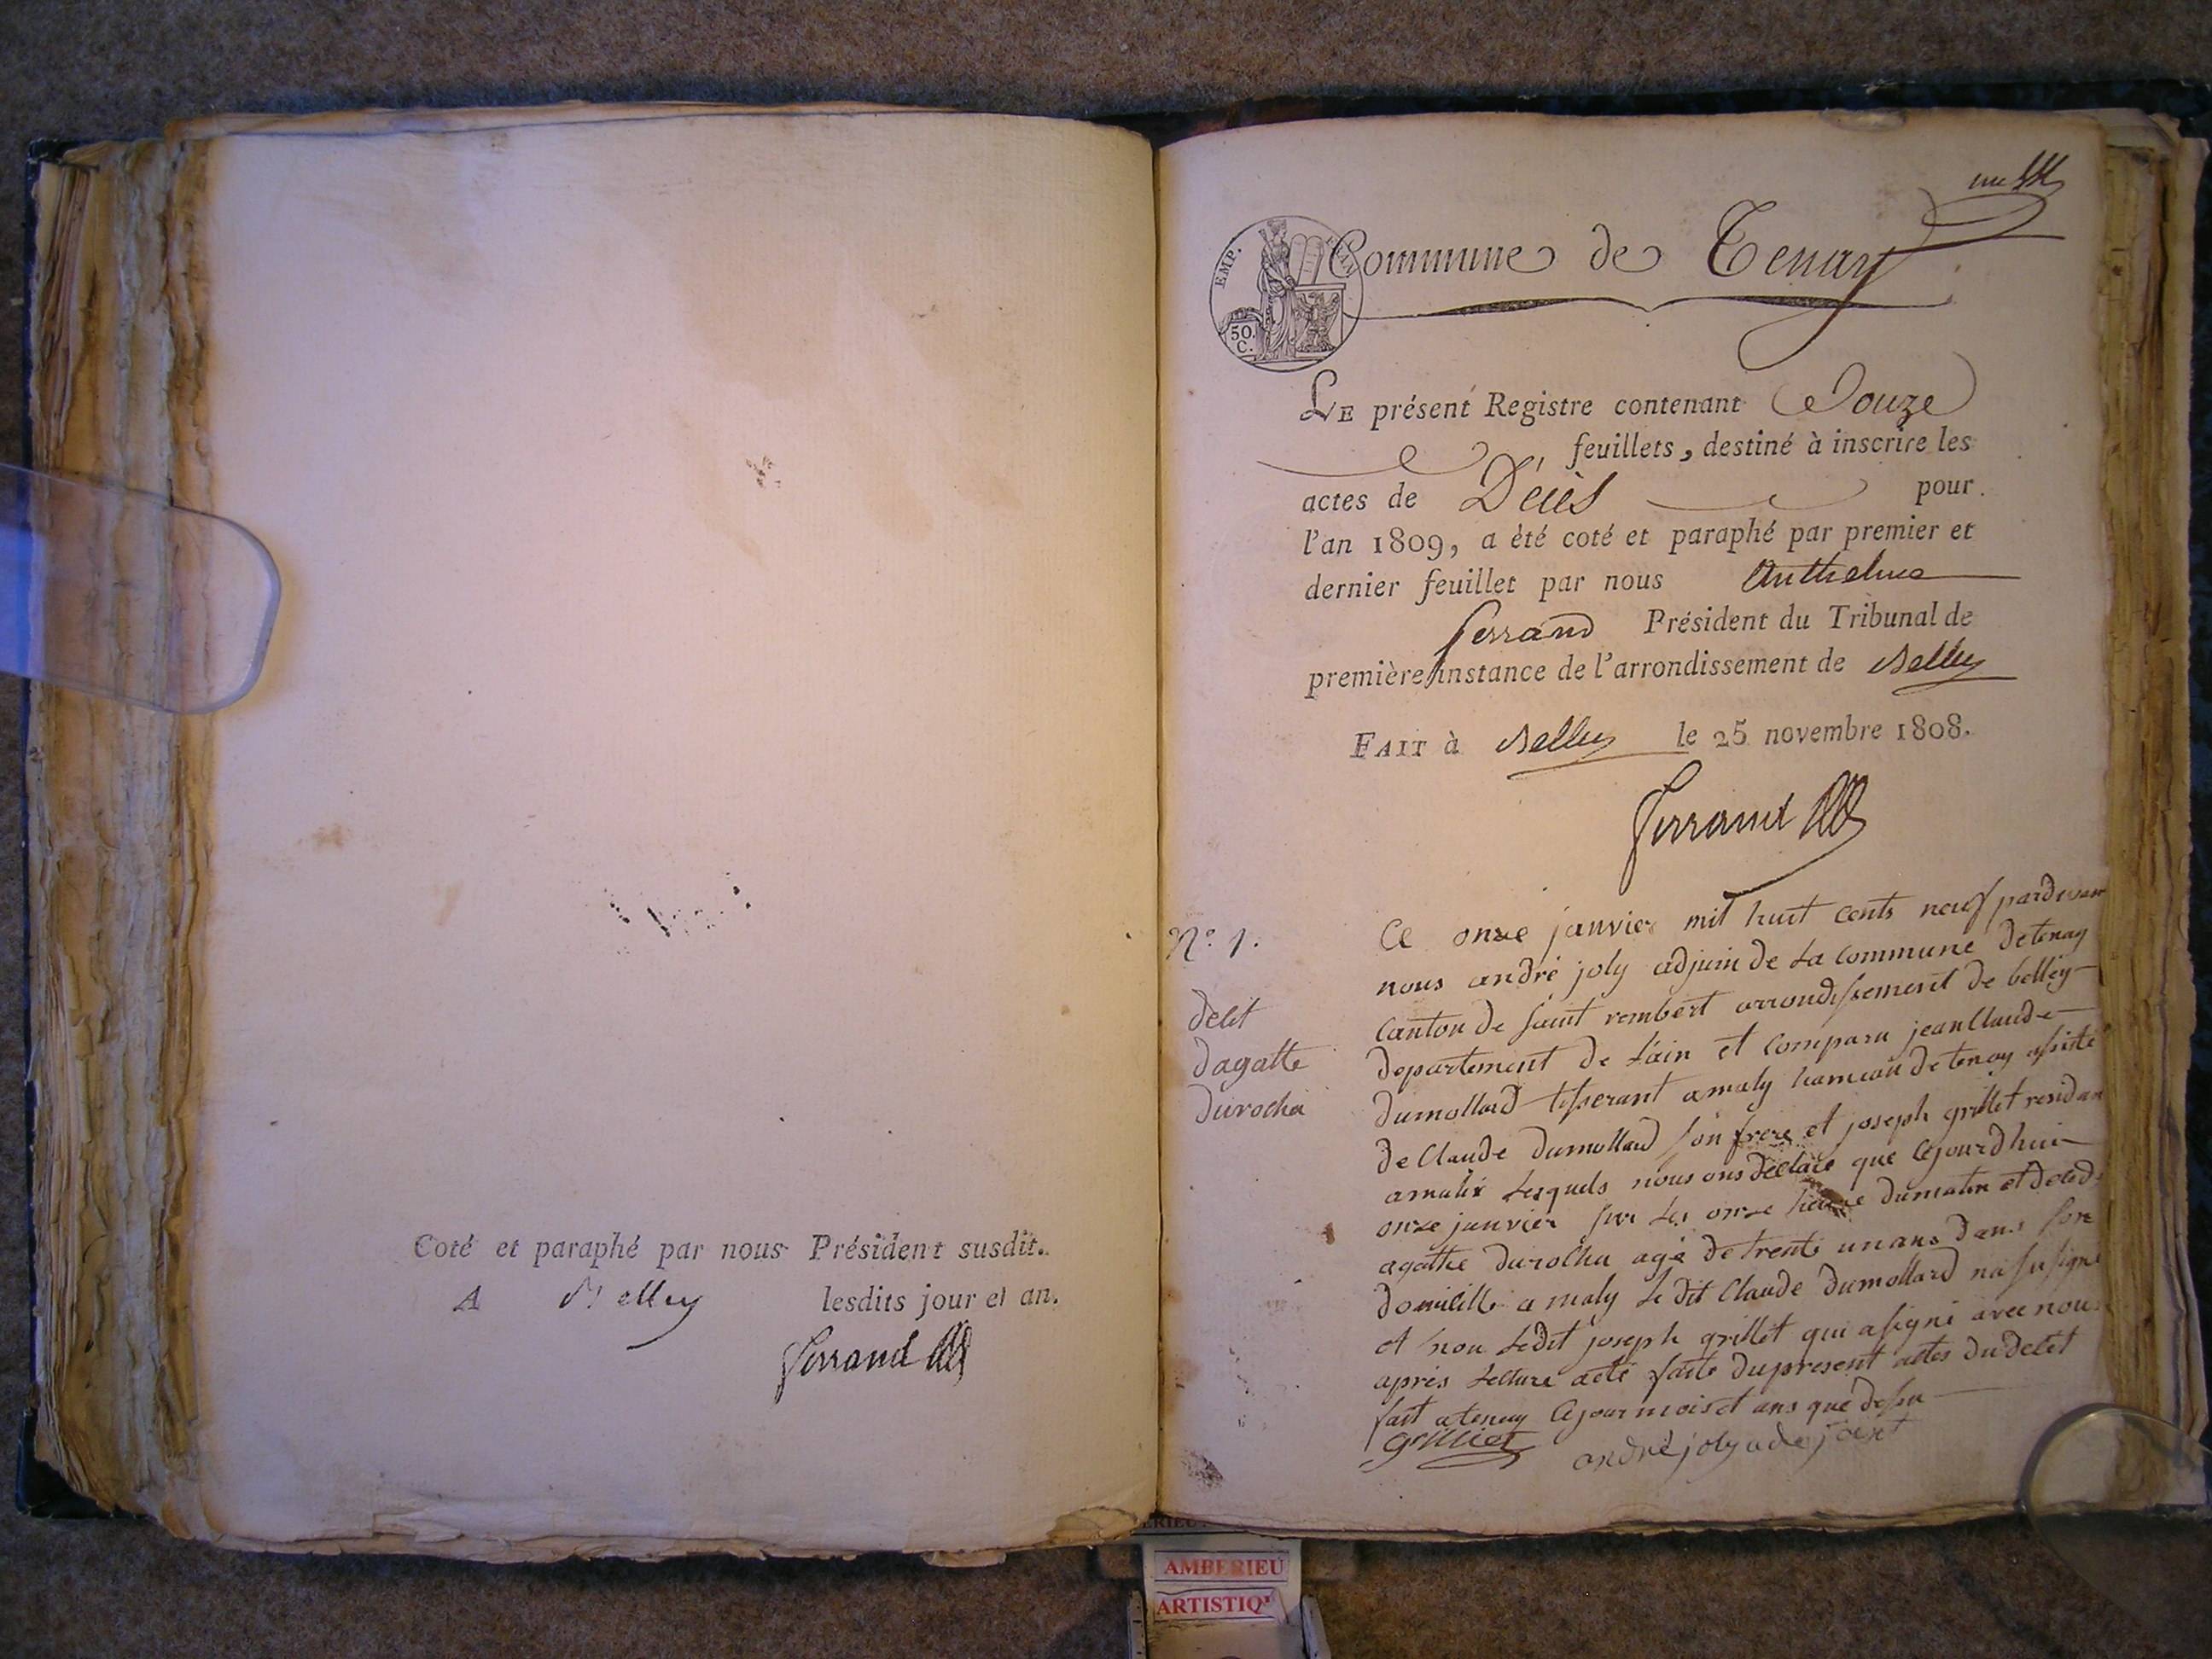 Coté et paraphé par nous Président susdit.
A Belley lesdits jour et an.
Ferrand
une
EMP.
50 C.
Commune de Tenay
LE présent Registre contenant Douze
feuillets, destiné à inscrire les
actes de Décès pour
l'an 1809, a èté coté et paraphé par premier et
dernier feuillet par nous Anthelme
ferrand Président du Tribunal de
première instance de l'arrondissement de Belley
FAIT à Belley le 25 novembre 1808.
Ferrand
N.° 1.
decet
dagatte
durochà
Ce onze janvier mil huit cents neuf pardevan
nous andré joly adjuin de La commune detenay
Canton de saint rembert arrondissement de belley
departement de L'ain et Comparu jean Claude
dumollard tisserant a maly hameau de tenay assisté
de Claude dumollard son frere et joseph grillet rendan
Lesquels nous ons déclaré que Cejourdhui
onze janvier sur Les onze heure dumatin et decedé
agathe durocha agé de trente un ans dans son
domicille a maly Le dit Claude dumollard na su signé
et non Ledit joseph grillet qui a signé avec nous
après Lecture acte faite dupresent actes dudecet
fait a tenay Cejour mois et ans que desu
grilliet andré joly adejoint
AMBERIEU
ARTISTIQ